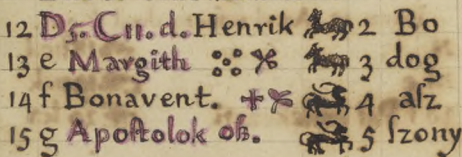 12 D5. C11. d. Henrik 2 Bo
13 e Margith 3 dog
14 f Bonavent. 4 aſz
15 g Apoſtolok oß. 5 ſzony